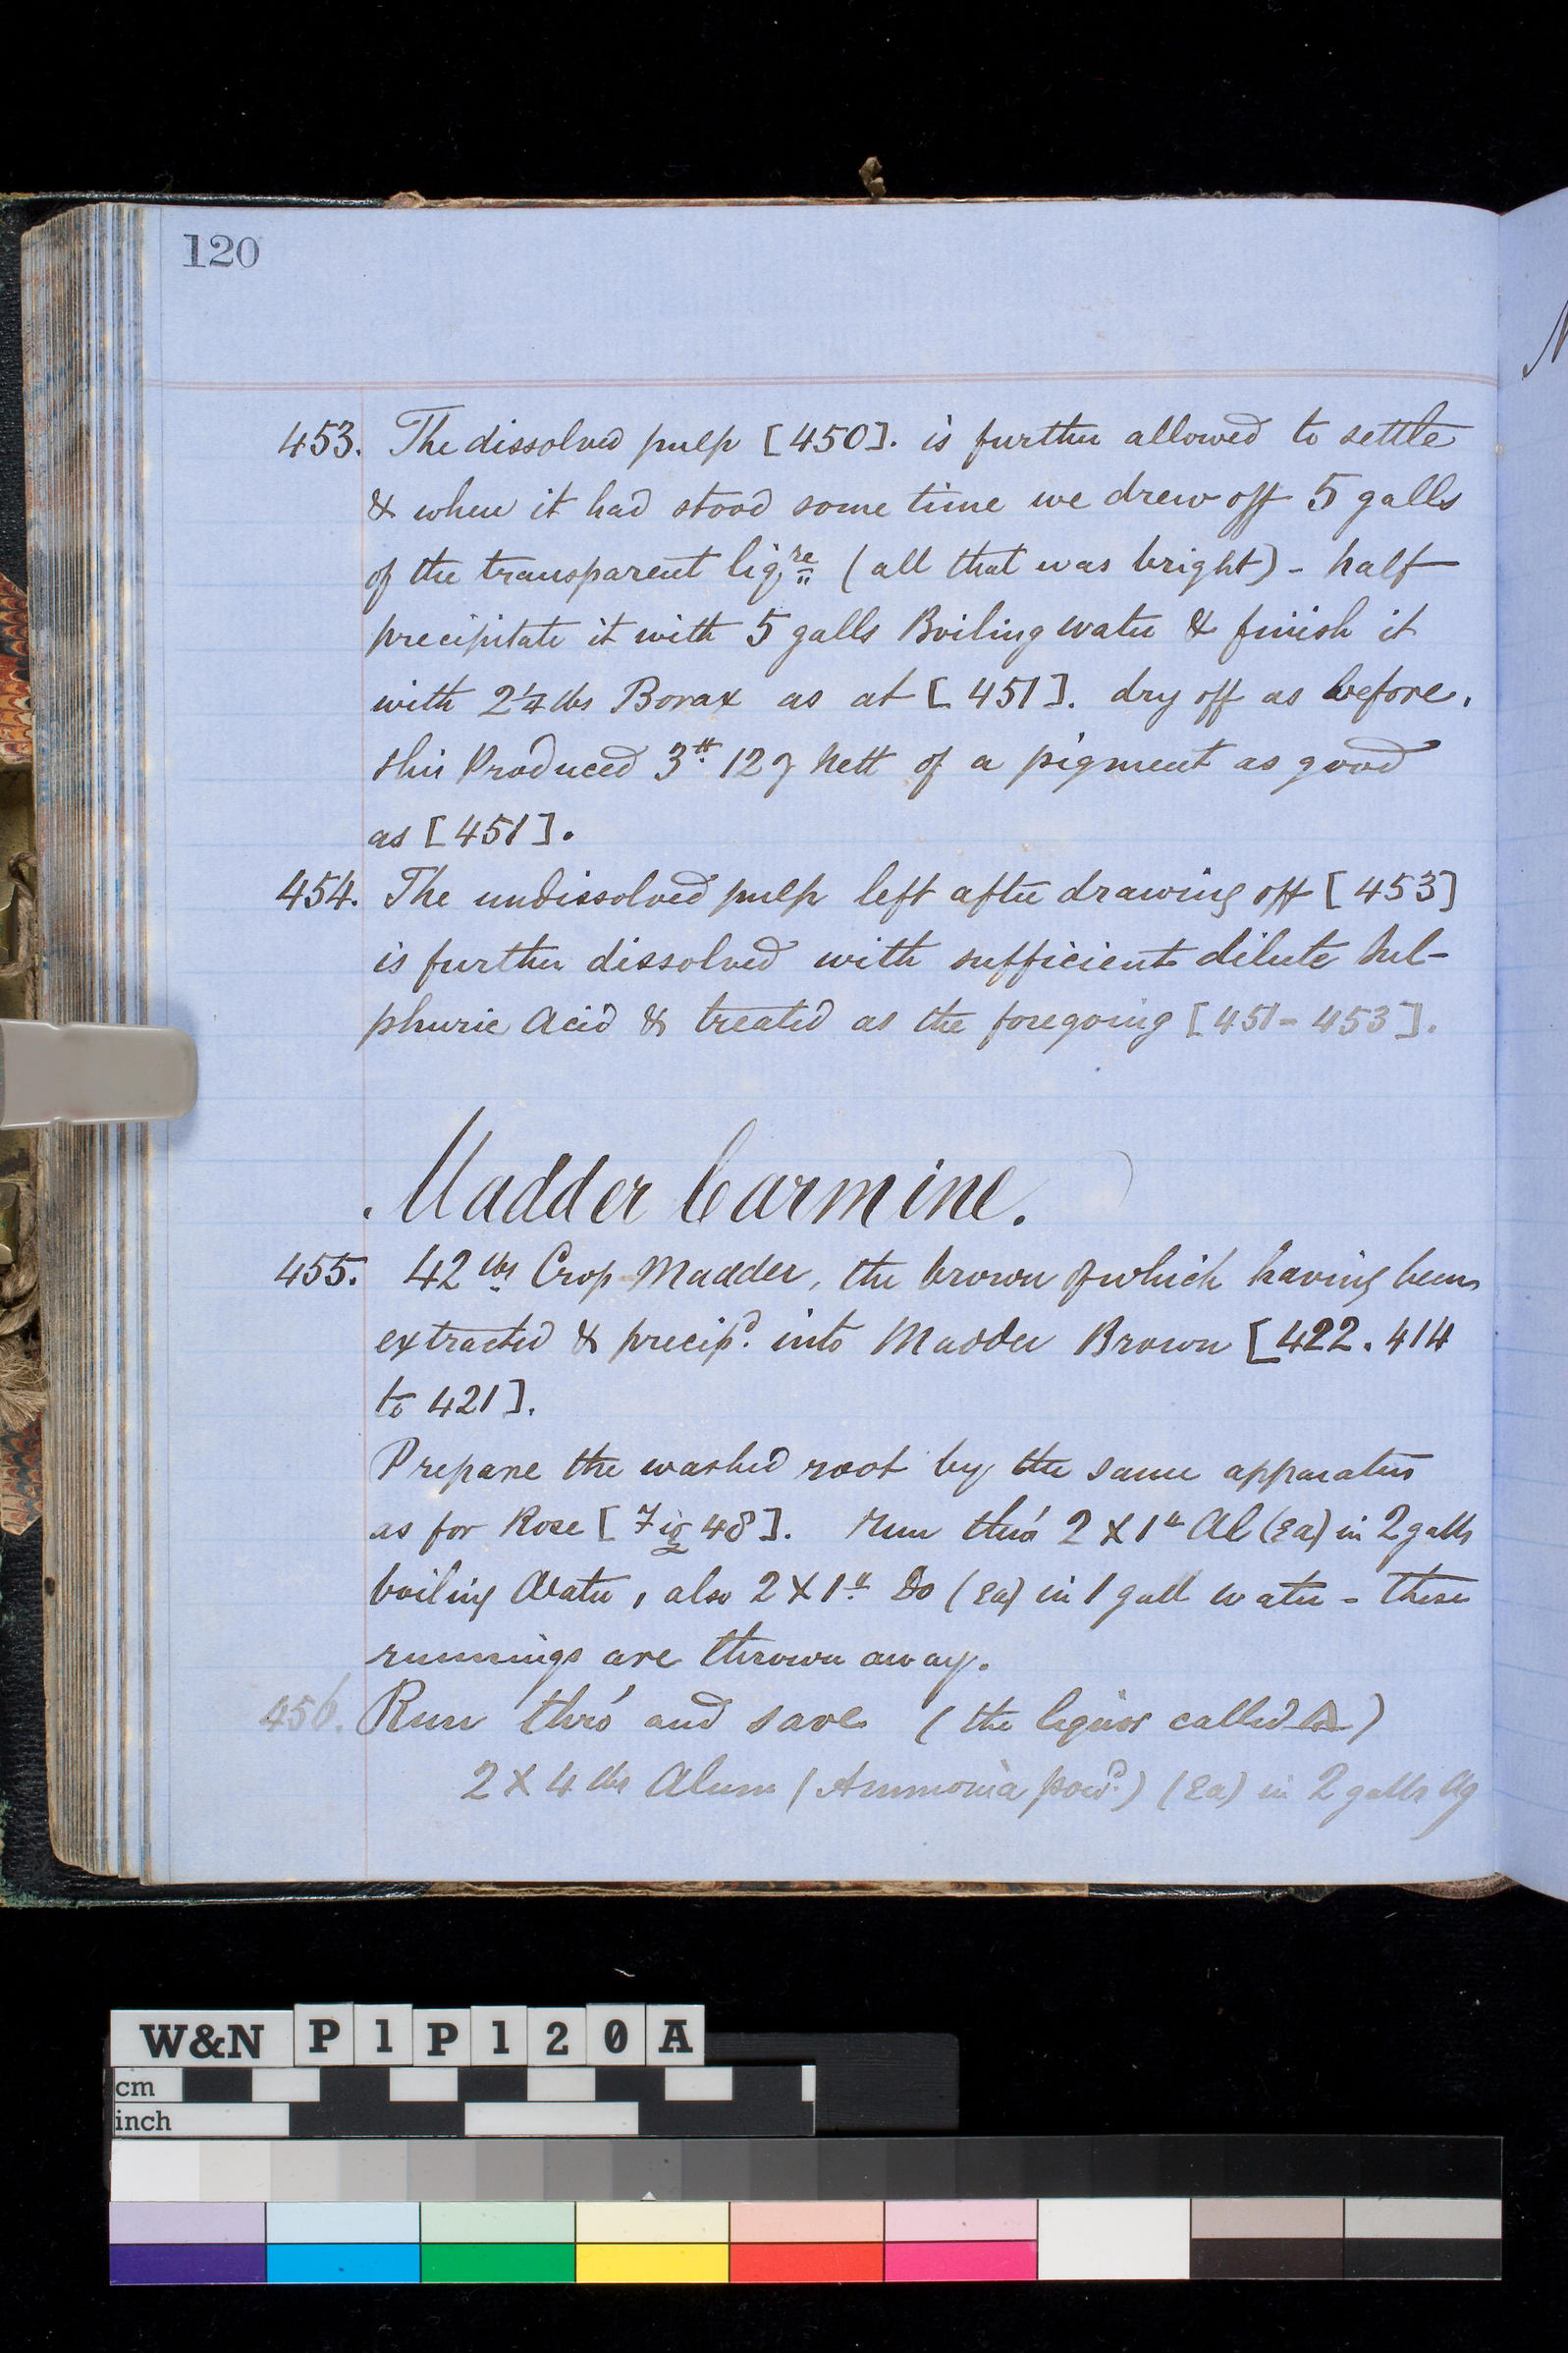 120
453. The dissolved pulp [450]. is further allowed to settle
& when it had stood some time we drew off 5 galls
of the transparent liqre (all that was bright) - half
precipitate it with 5 galls Boiling water & finish it
with 2 1/4 lbs Borax as at [451]. dry off as before.
this Produced 3lb 12 oz nett of a pigment as good
as [451].
454. The undissolved pulp left after drawing off [453]
is further dissolved with sufficient dilute Sul-
phuric Acid & treated as the foregoing [451 - 453].
Madder Carmine.
455. 42 lbs Crop Madder, the brown of which having been
extracted & precipd into Madder Brown [422. 414
to 421].
Prepare the washed root by the same apparatus
as for Rose [Fig 48]. Run thro' 2 X 1lb Al (Ea) in 2 galls
boiling Water, also 2 X 1lb Do (Ea) in 1 gall water - these
runnings are thrown away.
456. Run thro' and save (the liquor called A)
2 X 4 lbs Alum (Ammonia powd) (Ea) in 2 galls Aq
W&N P1P120A
cm
inch